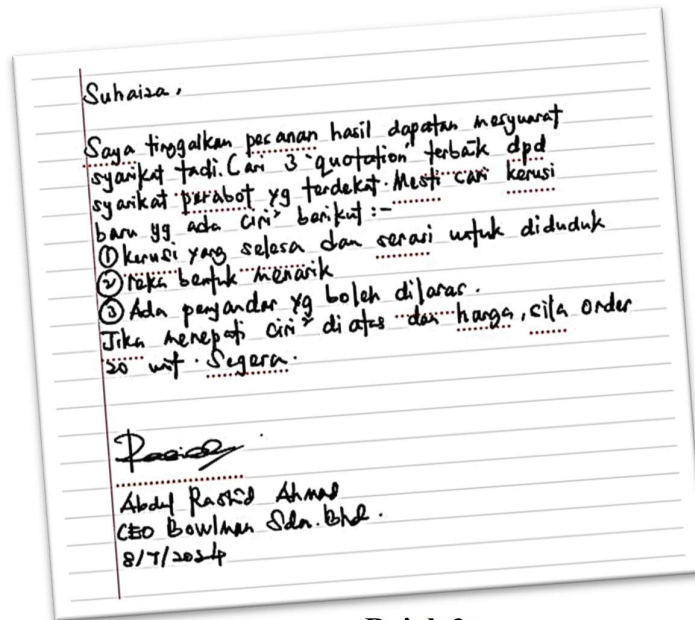 Suhaiza,
Saya tinggalkan pesanan hasil dapatan mesyuarat
syarikat tadi. Cari 3 "quotation" terbaik dpd
syarikat perabot yg terdekat. Mesti cari kerusi
baru yg ada ciri² berikut :-
① kerusi yang selesa dan serasi untuk diduduk
② reka bentuk menarik
③ Ada penyandar yg boleh dilaras.
Jika menepati ciri² di atas dan harga, sila order
20 unit. Segera.
Abdul Rashid Ahmad
CEO Bowlman Sdn. Bhd.
8/7/2024